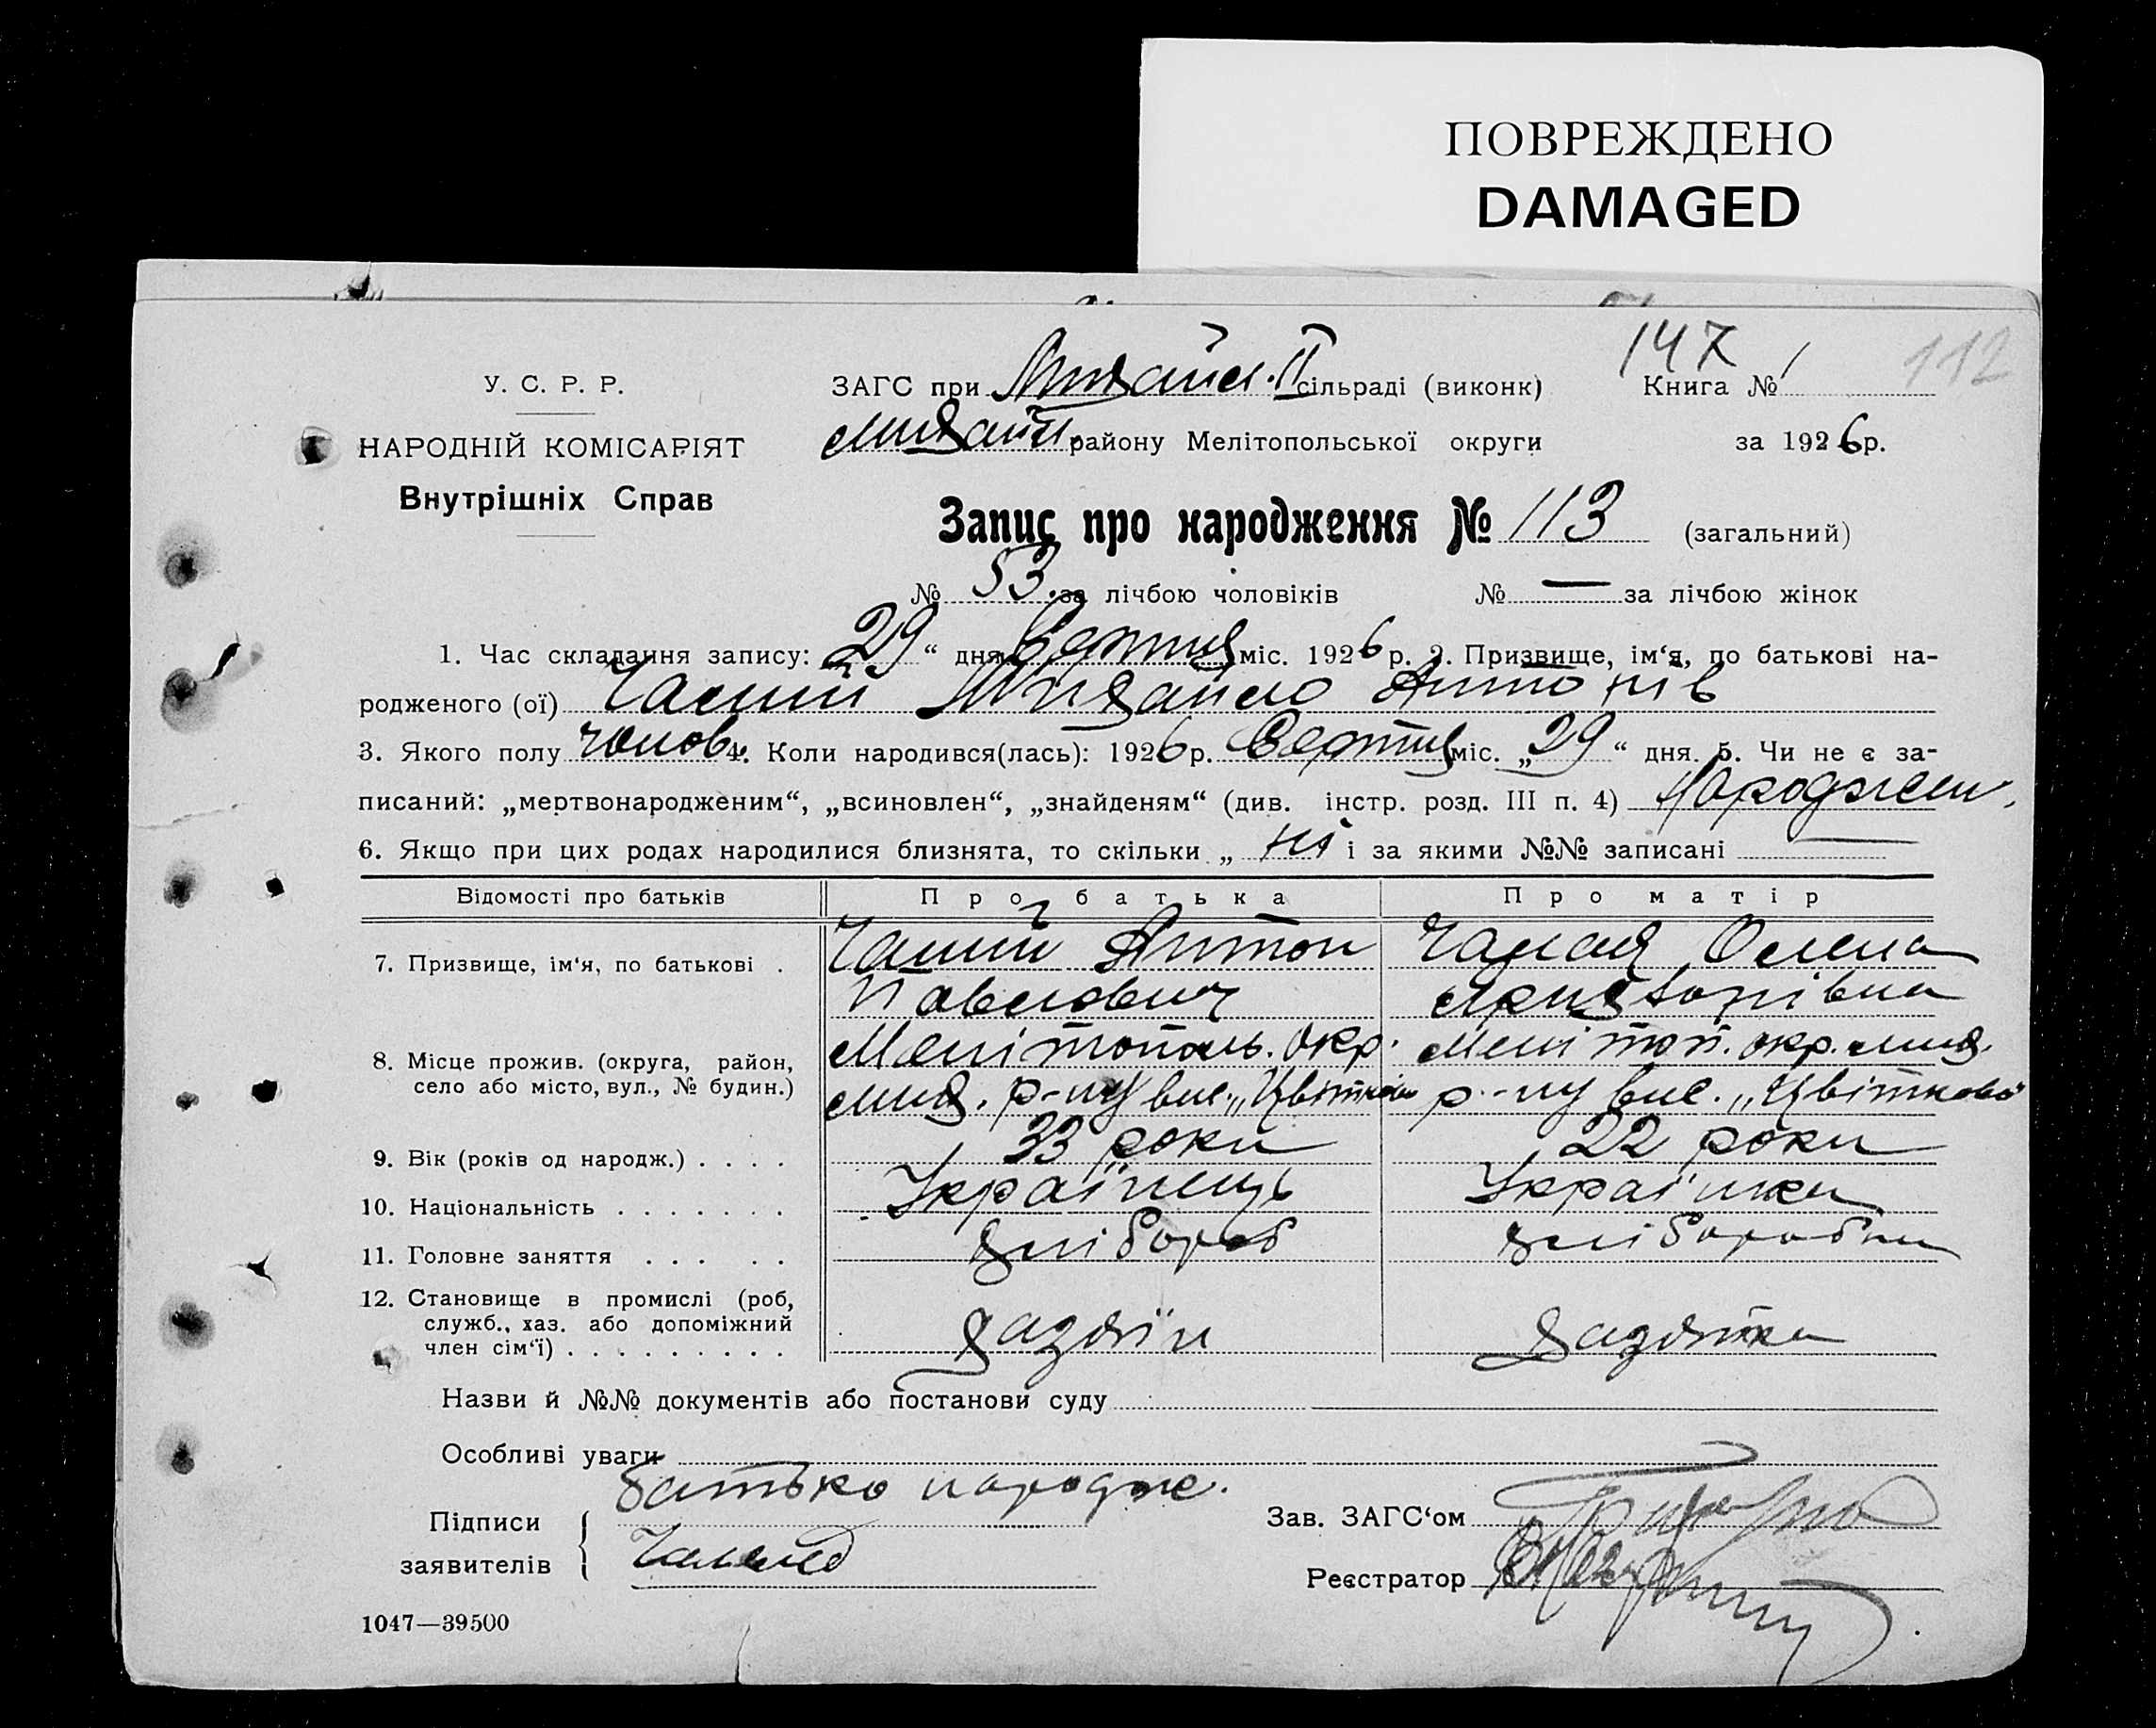 ПОВРЕЖДЕНО
DAMAGED
147 112
У. С. Р. Р. ЗАГС при Михайл. II сільраді (виконк) Книга № 1
НАРОДНІЙ КОМІСАРІЯТ Михайл. району Мелітопольської округи за 1926 р.
Внутрішніх Справ
Запис про народження № 113 (загальний)
№ 53. за лічбою чоловіків № — за лічбою жінок
1. Час складання запису: 29 “ дня міс. 1926 р. 2. Призвище, ім‘я, по батькові на-
родженого (ої) Чалий Михайло Антонів
3. Якого полу чолов. 4. Коли народився(лась): 1926 р. міс. „ 29 “ дня. 5. Чи не є за-
писаний: „мертвонародженим“, „всиновлен“, „знайденям“ (див. інстр. розд. III п. 4) Народжен.
6. Якщо при цих родах народилися близнята, то скільки „ ні і за якими №№ записані —
Відомості про батьків Про батька Про матір
7. Призвище, ім‘я, по батькові . Чалий Антон Чалая Олена
Павлович
8. Місце прожив. (округа, район, Мелітополь. окр. Мелітоп. окр. мих.
село або місто, вул., № будин.) мих. р-ну вис. „Цвітково р-ну вис. „Цвітково
9. Вік (років од народж.) . . . . 33 роки 22 роки
10. Національність . . . . . . . Українець Українка
11. Головне заняття . . . . . хлібороб хліборобка
12. Становище в промислі (роб,
служб., хаз. або допоміжний
член сім‘ї) . . . . . . . . . хазяїн хазяйка
Назви й №№ документів або постанови суду
Особливі уваги
батько народж.
Підписи Зав. ЗАГС‘ом
заявителів Чалий
Реєстратор
1047—39500